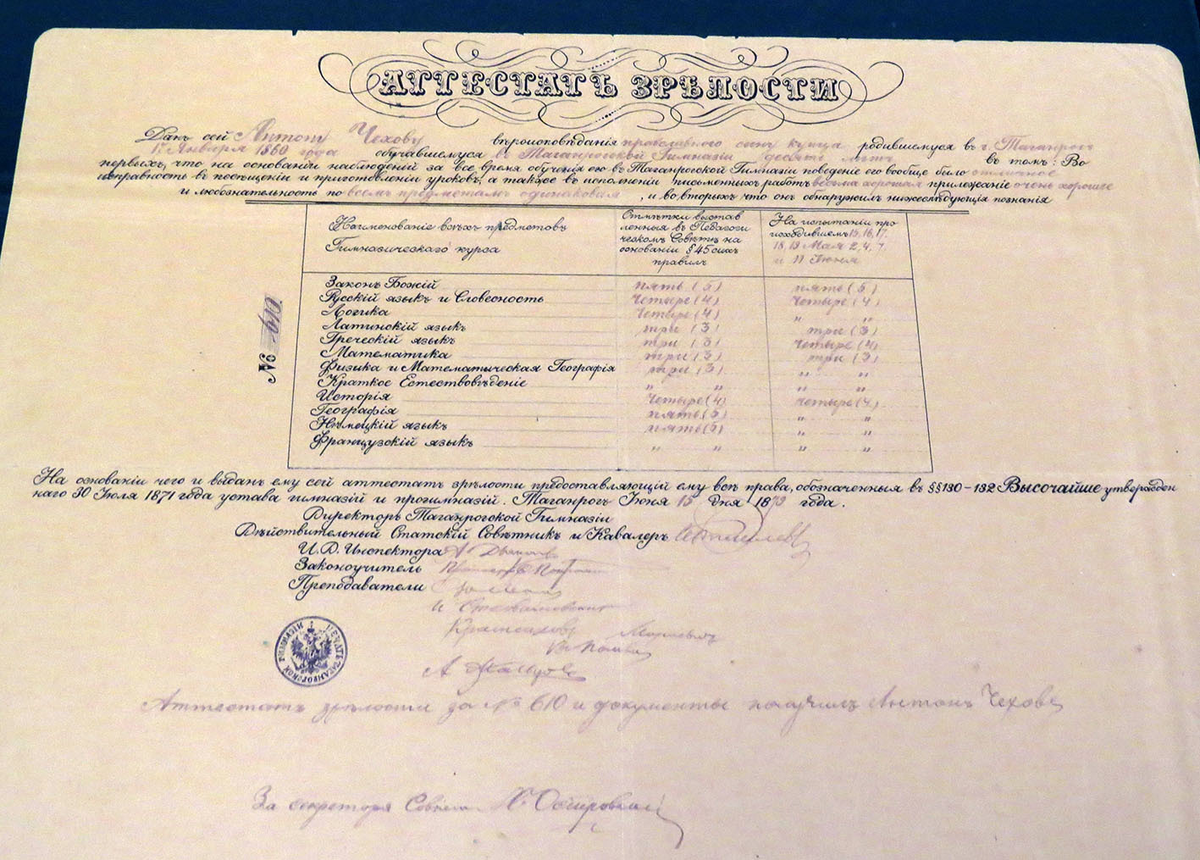 АТТЕСТАТЪ ЗРѢЛОСТИ
Данъ сей Антону Чехову вѣроисповѣданія православнаго сыну купца родившемуся въ г. Таганрогѣ
17 Января 1860 года обучавшемуся въ Таганрогской Гимназіи десять лѣтъ въ томъ: Во
первыхъ, что на основаніи наблюденій за все время обученія его въ Таганрогской Гимназіи поведеніе его вообще было отличное
исправность въ посѣщеніи и приготовленіи уроковъ, а также въ исполненіи письменныхъ работъ весьма хорошая прилежаніе очень хорошее
и любознательность по всѣмъ предметамъ одинаковая, и во вторыхъ что онъ обнаружилъ нижеслѣдующія познанія
Наименованіе всѣхъ предметовъ Гимназическаго курса
Отмѣтки выстав
ленныя въ Педагоги
ческомъ Совѣтѣ на
основаніи § 45 сихъ
правилъ
На испытаніи про
исходившемъ 15, 16, 17,
18, 19 Мая 2, 4, 7,
и 11 Іюня
№
Законъ Божій пять (5) пять (5)
Русскій языкъ и Словесность четыре (4) четыре (4)
Логика четыре (4) " "
Латинскій языкъ три (3) три (3)
Греческій языкъ три (3) четыре (4)
Математика три (3) три (3)
Физика и Математическая Географія три (3) " "
Краткое Естествовѣденіе " " " "
Исторія четыре (4) четыре (4)
Географія пять (5) " "
Нѣмецкій языкъ пять (5) " "
Французскій языкъ " " " "
На основаніи чего и выданъ ему сей аттестатъ зрѣлости предоставляющій ему всѣ права, обозначенныя въ §§ 130–132 Высочайше утвержден
наго 30 Іюля 1871 года устава гимназій и прогимназій. Таганрогъ Іюня 15 дня 18 года.
Директоръ Таганрогской Гимназіи
Дѣйствительный Статскій Совѣтникъ и Кавалеръ
И.Д. Инспектора А. Дьяконовъ
Законоучитель
Преподаватели
ПЕЧАТЬ ТАГАНРОГСКОЙ ГИМНАЗІИ
Аттестатъ зрѣлости за № 610 и документы получилъ Антонъ Чеховъ
За секретаря Совѣта